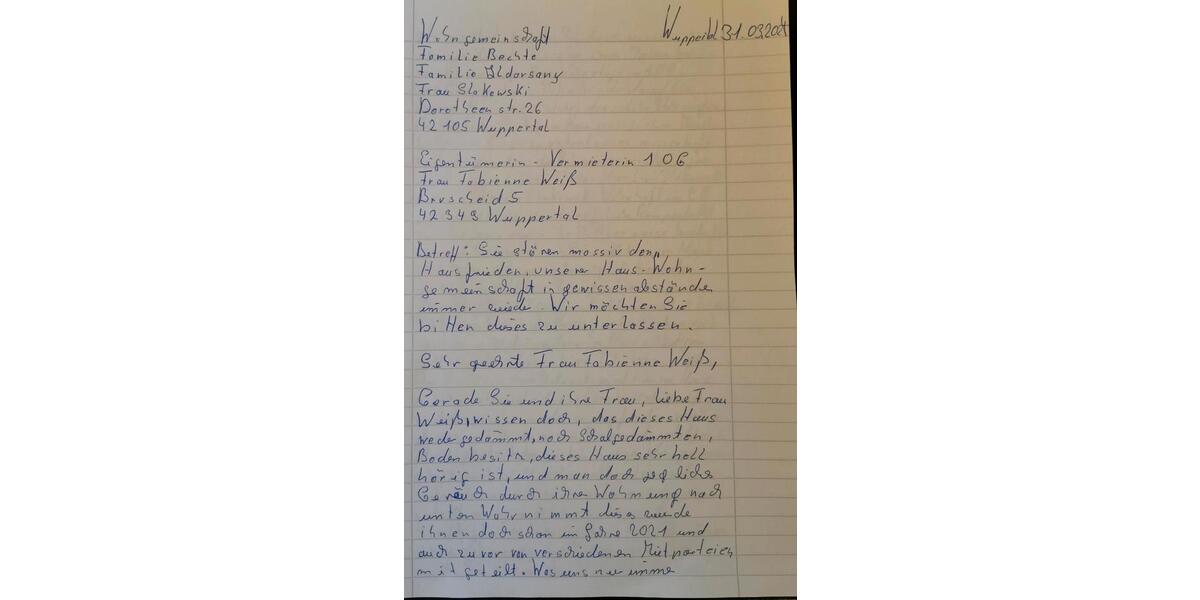 Wohngemeinschaft
Wuppertal 31.03.2024
Familie Bechte
Familie Aldorsany
Frau Slokowski
Dorotheen str. 26
42 105 Wuppertal
Eigentümerin - Vermieterin 1 OG
Frau Fabienne Weiß
Bruscheid 5
42 349 Wuppertal
Betreff: Sie stören massiv den,,
Hausfrieden, unserer Haus-Wohn-
gemeinschaft in gewissen abständen
immer wiede. Wir möchten Sie
bitten dieses zu unterlassen.
Sehr geehrte Frau Fabienne Weiß,
Gerade Sie und ihre Frau, liebe Frau
Weiß, wissen doch, das dieses Haus
weder gedämmt, noch Schalgedämmten,
Boden besitz, dieses Haus sehr hell
hörig ist, und man doch jegliche
Geräuch durch ihre Wohnung nach
unten Wahrnimmt dieses wurde
ihnen doch schon im Jahre 2021 und
auch zu vor von verschiedenen Mietparteien
mit geteilt. Was uns nur imme